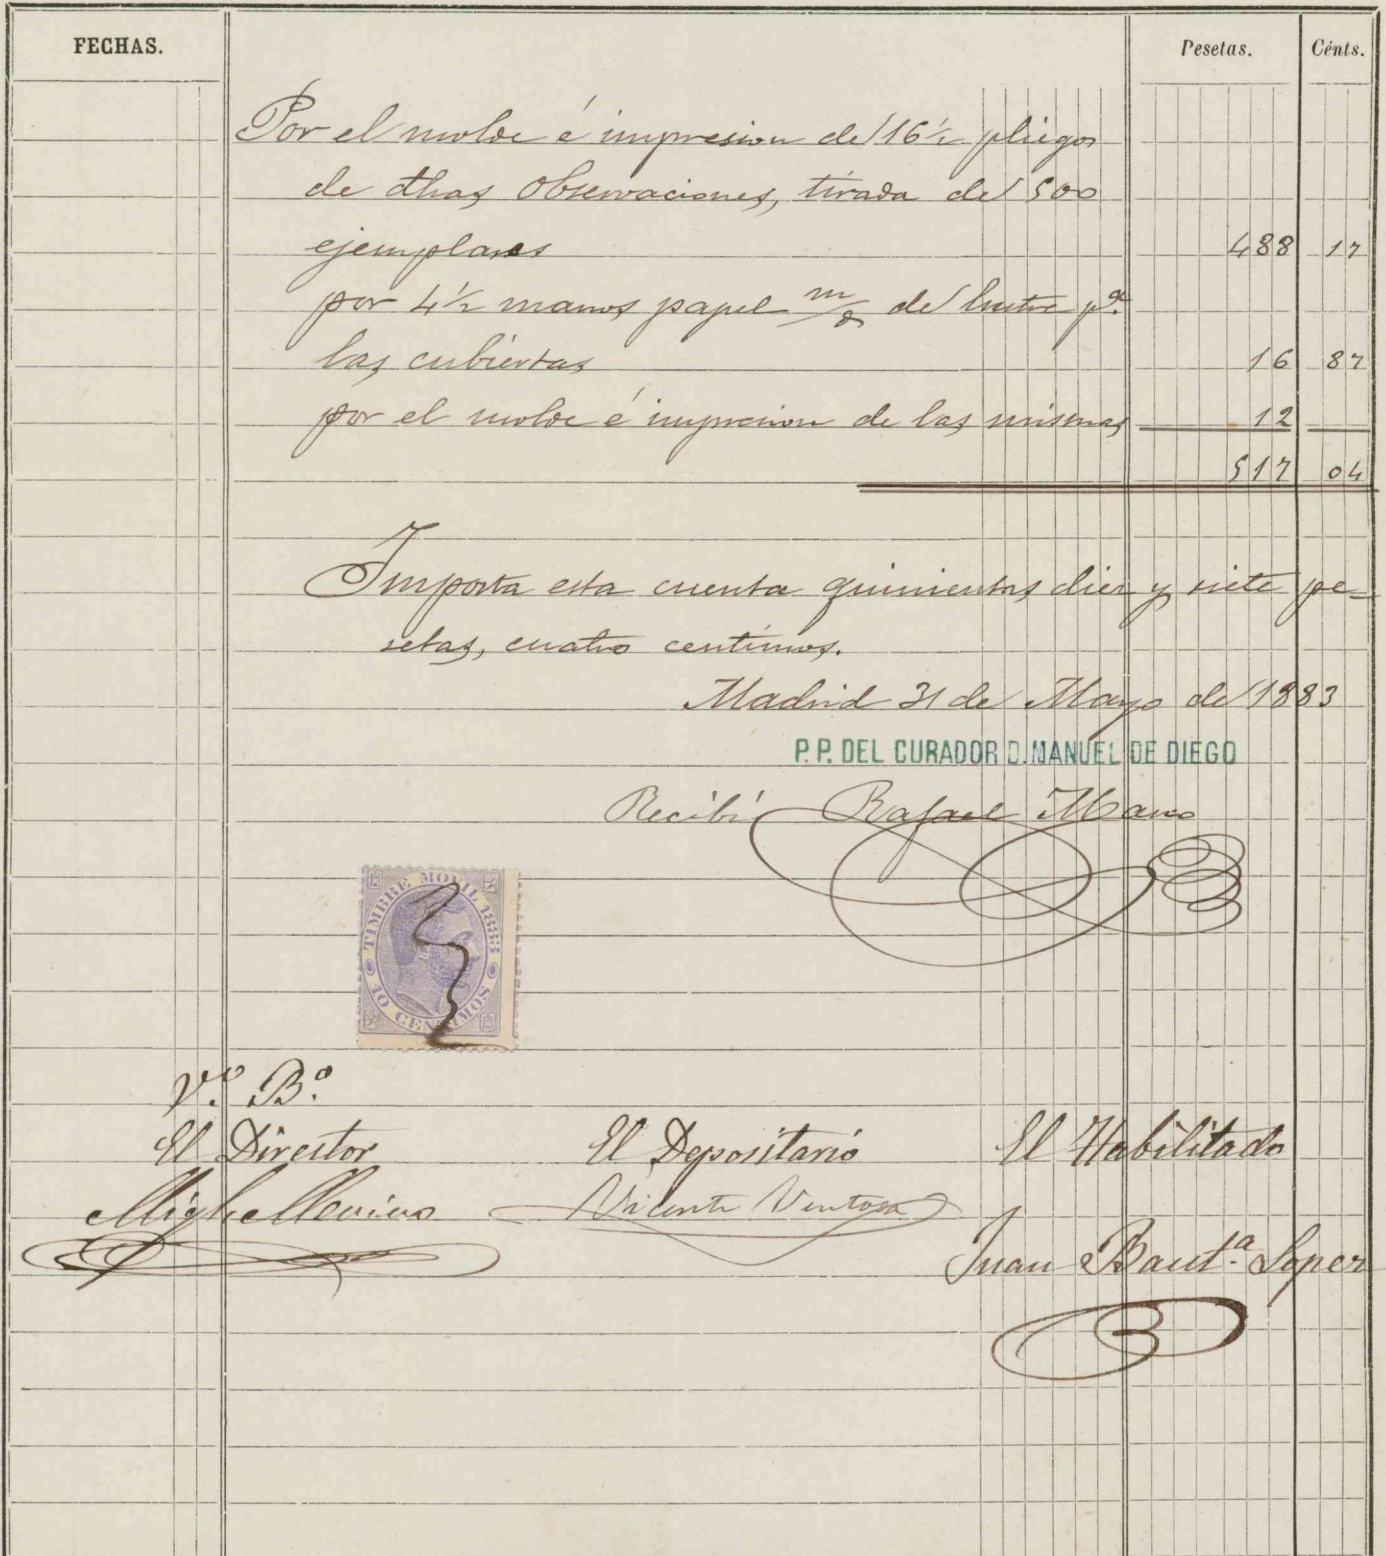 FECHAS. Pesetas. Cénts.
Por el molde é impresion de 16 ½ pliegos
de dhas Observaciones, tirada de 500
ejemplares 488 17
por 4 ½ manos papel m/8 de lustre p.ª
las cubiertas 16 87
por el molde é impresion de las mismas 12
517 04
Importa esta cuenta quinientas diez y siete pe=
setas, cuatro centimos.
Madrid 31 de Mayo de 1883
P.P. DEL CURADOR D. MANUEL DE DIEGO
Recibí Rafael
TIMBRE MOVIL 1883
10 CENTIMOS
V.º B.º
El Director El Depositario El Habilitado
Vicente Ventosa
Juan Baut.ª Lopez